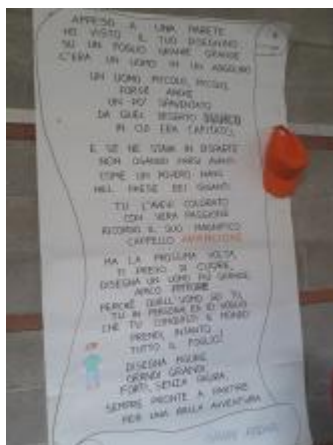 APPESO A UNA PARETE
HO VISTO IL TUO DISEGNINO
SU UN FOGLIO GRANDE GRANDE
C'ERA UN UOMO IN UN ANGOLINO
UN UOMO PICCOLO, PICCOLO,
FORSE ANCHE
UN PO' SPAVENTATO
DA QUEL DESERTO BIANCO
IN CUI ERA CAPITATO,
E SE NE STAVA IN DISPARTE
NON OSANDO FARSI AVANTI
COME UN POVERO NANO
NEL PAESE DEI GIGANTI.
TU L'AVEVI COLORATO
CON VERA PASSIONE
RICORDO IL SUO MAGNIFICO
CAPPELLO ARANCIONE
MA LA PROSSIMA VOLTA,
TI PREGO DI CUORE,
DISEGNA UN UOMO PIÙ GRANDE,
AMICO PITTORE
PERCHÉ QUELL'UOMO SEI TU,
TU IN PERSONA, ED IO VOGLIO
CHE TU CONQUISTI IL MONDO
PRENDI, INTANTO,
TUTTO IL FOGLIO!
DISEGNA FIGURE
GRANDI GRANDI
FORTI, SENZA PAURA,
SEMPRE PRONTE A PARTIRE
PER UNA BELLA AVVENTURA
GIANNI RODARI